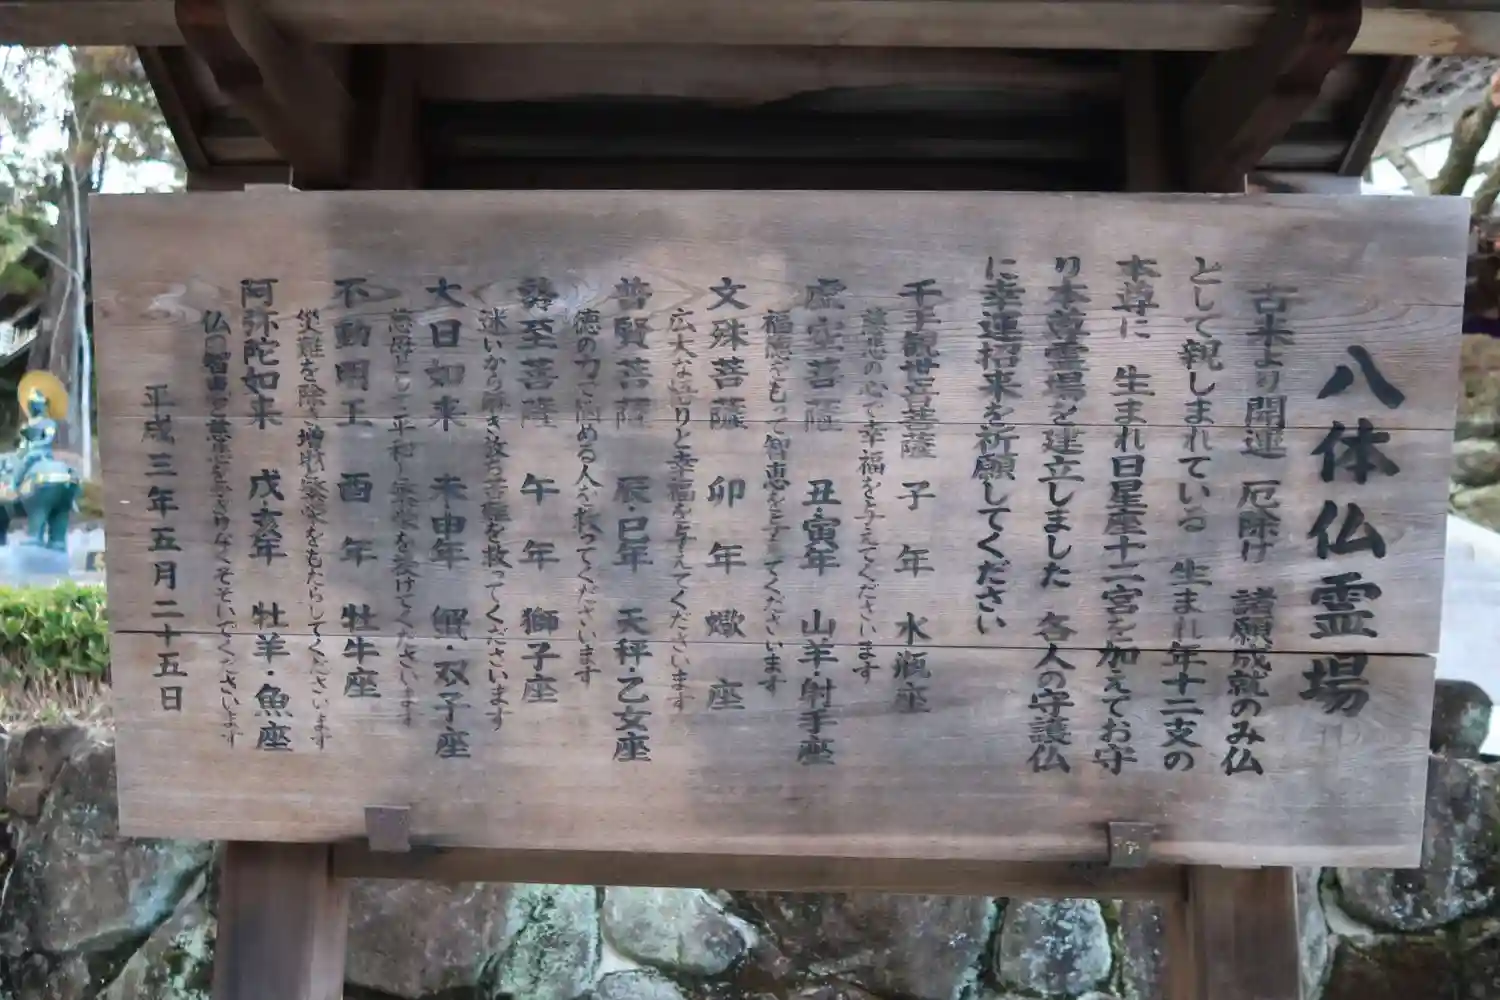 八体仏霊場
古来より開運 厄除け 諸願成就のみ仏
として親しまれている 生まれ年十二支の
本尊に 生まれ日星座十二宮を加えてお守
り本尊霊場を建立しました 各人の守護仏
に幸運招来を祈願してください
千手観世音菩薩 子年 水瓶座
慈悲の心で幸福を与えてくださいます
虚空菩薩 丑・寅年 山羊・射手座
福徳をもって智恵を与えてくださいます
文殊菩薩 卯年 蠍座
広大な悟りと幸福を与えてくださいます
普賢菩薩 辰・巳年 天秤・乙女座
徳の力で悩める人を救ってくださいます
勢至菩薩 午年 獅子座
迷いから解き放ち苦難を救ってくださいます
大日如来 未申年 蟹・双子座
慈母として平和と栄を授けてくださいます
不動明王 酉年 牡牛座
災難を除き増財栄をもたらしてくださいます
阿弥陀如来 戌・亥年 牡羊・魚座
仏の智恵と慈悲をかぎりなくそそいでくださいます
平成三年五月二十五日